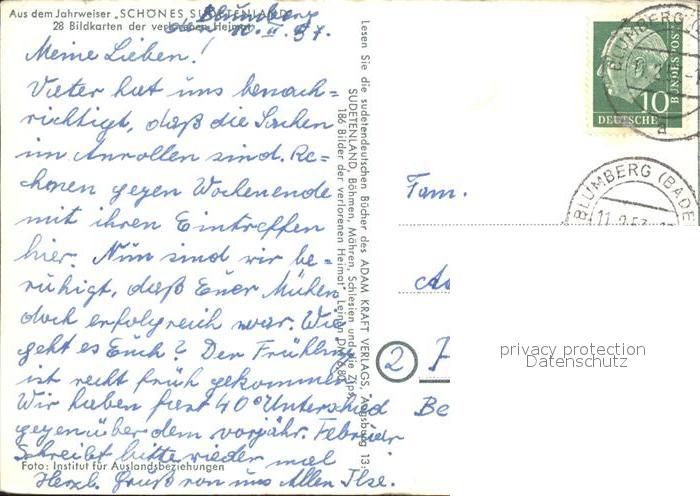 Aus dem Jahrweiser „SCHÖNES SUDETENLAND"
28 Bildkarten der verlorenen Heimat
Blumberg
10. II. 57.
Meine Lieben!
Vater hat uns benach=
richtigt, daß die Sachen
im Anrollen sind. Re=
chenen gegen Wochenende
mit ihren Eintreffen
hier. Nun sind wir be=
ruhigt, daß Euer Mühen
doch erfolgreich war. Wie
geht es Euch? Der Frühling
ist recht früh gekommen
Wir haben fast 40° Unterschied
gegenüber dem vorjähr. Februar
Schreibt bitte wieder mal
Herzl. Gruß von uns Allen Ilse.
Foto: Institut für Auslandsbeziehungen
Lesen Sie die sudetendeutschen Bücher des ADAM KRAFT VERLAGS, Augsburg 13:
SUDETENLAND, Böhmen, Mähren, Schlesien und die Zips
186 Bilder der verlorenen Heimat, Leinen DM
BLUMBERG
a
10
DEUTSCHE
BUNDESPOST
BLUMBERG (BADE
11.2.57
Fam.
2
Be
privacy protection
Datenschutz